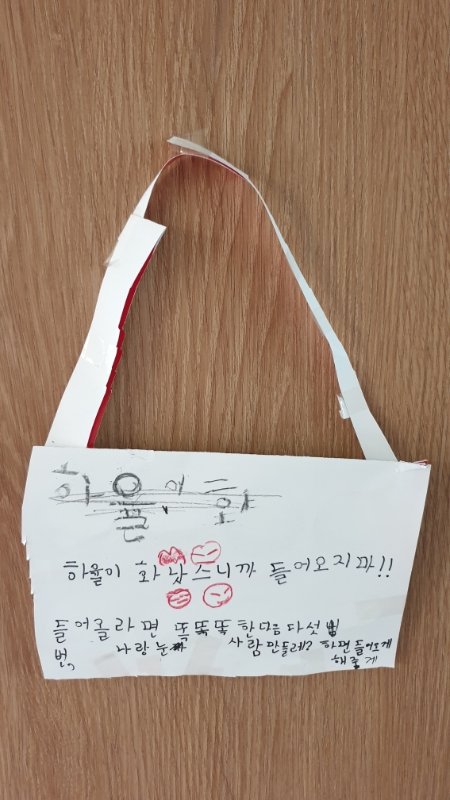 하율이 화 났스니까 들어오지마!!
들어올라면 똑똑똑 한다음 다섯
번, 나랑 눈 사람 만들레? 하면 들어오게
해줄게